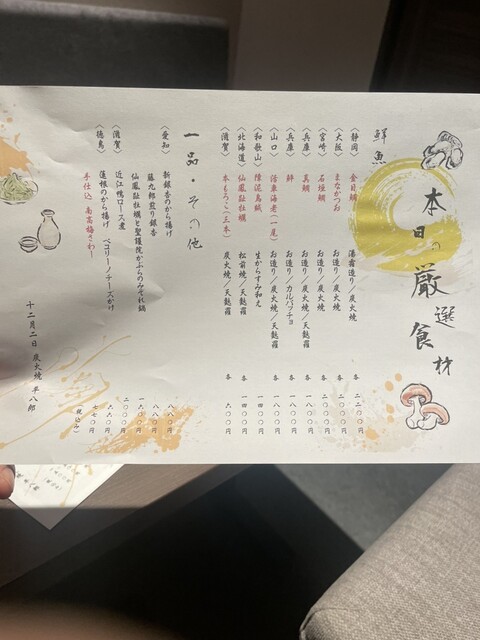 本日の厳選食材
鮮魚
〈静岡〉 金目鯛 湯霜造り/炭火焼 各 二二〇〇円
〈大阪〉 まながつお お造り/炭火焼 各 二〇〇〇円
〈宮崎〉 石垣鯛 お造り/炭火焼 各 二〇〇〇円
〈兵庫〉 真鯛 お造り/炭火焼/天麩羅 各 一八〇〇円
〈兵庫〉 鰆 お造り/カルパッチョ 各 一八〇〇円
〈山口〉 活車海老(一尾) お造り/炭火焼/天麩羅 各 一八〇〇円
〈和歌山〉 障泥烏賊 生からすみ和え 各 一四〇〇円
〈北海道〉 仙鳳趾牡蠣 松前焼/天麩羅 各 一四〇〇円
〈滋賀〉 本もろこ(三本) 炭火焼/天麩羅 各 六〇〇円
一品・その他
〈愛知〉 新銀杏のから揚げ 八八〇円
藤九郎煎り銀杏 八八〇円
仙鳳趾牡蠣と聖護院かぶらのみぞれ鍋 一六五〇円
〈滋賀〉 近江鴨ロース煮 二〇〇〇円
〈徳島〉 蓮根のから揚げ ペコリーノチーズかけ 六六〇円
手仕込 南高梅さわー 七七〇円
(税込み)
十二月二日 炭火焼 半八郎